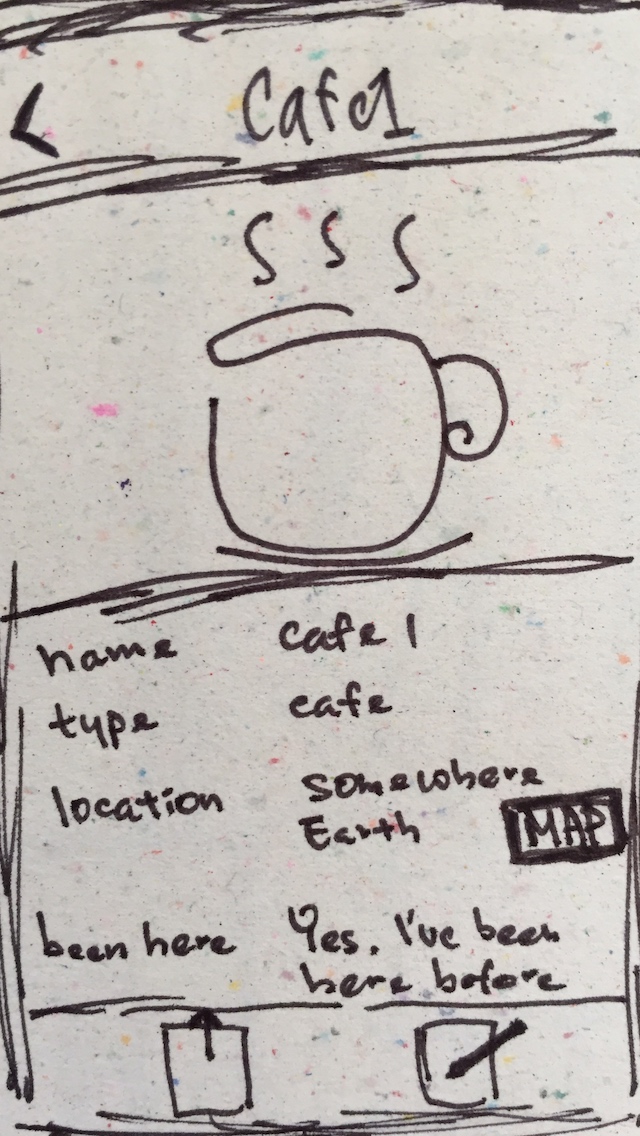 Cafe1
name cafe 1
type cafe
location somewhere
Earth MAP
been here Yes. I've been
here before